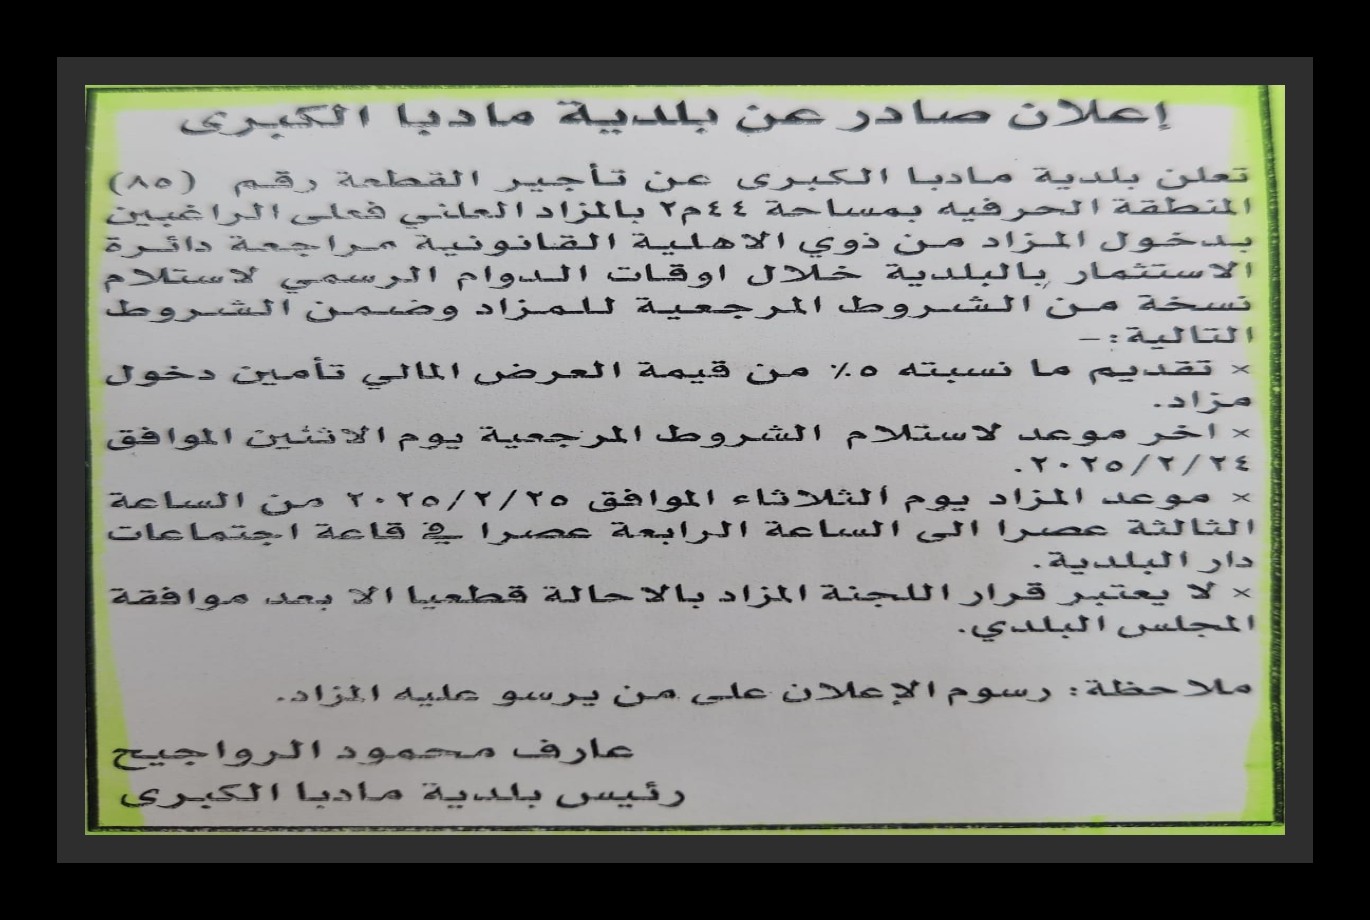 إعلان صادر عن بلدية مادبا الكبرى
تعلن بلدية مادبا الكبرى عن تأجير القطعة رقم (٨٥)
المنطقة الحرفيه بمساحة ٤٤م٢ بالمزاد العلني فعلى الراغبين
بدخول المزاد من ذوي الاهلية القانونية مراجعة دائرة
الاستثمار بالبلدية خلال اوقات الدوام الرسمي لاستلام
نسخة من الشروط المرجعية للمزاد وضمن الشروط
التالية:-
× تقديم ما نسبته ٥٪ من قيمة العرض المالي تأمين دخول
مزاد.
× اخر موعد لاستلام الشروط المرجعية يوم الاثنين الموافق
٢٠٢٥/٢/٢٤.
× موعد المزاد يوم الثلاثاء الموافق ٢٠٢٥/٢/٢٥ من الساعة
الثالثة عصرا الى الساعة الرابعة عصرا في قاعة اجتماعات
دار البلدية.
× لا يعتبر قرار اللجنة المزاد بالاحالة قطعيا الا بعد موافقة
المجلس البلدي.
ملاحظة: رسوم الإعلان على من يرسو عليه المزاد.
عارف محمود الرواجيح
رئيس بلدية مادبا الكبرى